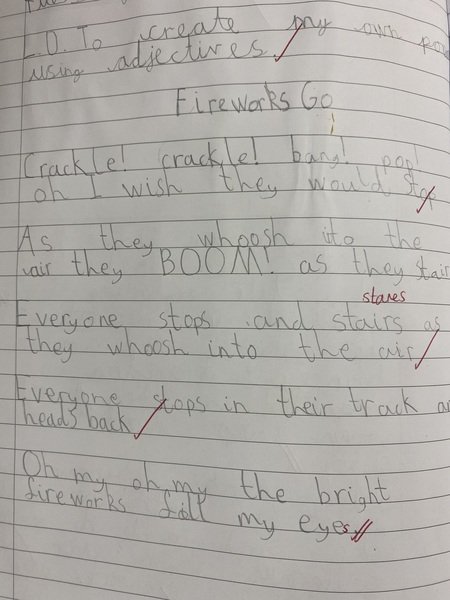 L.O. To create my own
using adjectives.
Fireworks Go
Crackle! crackle! bang! pop!
oh I wish they would stop
As they whoosh ito the
air they BOOM! as they stair
stares
Everyone stops and stairs as
they whoosh into the air
Everyone stops in their track
heads back
Oh my oh my the bright
fireworks fill my eyes